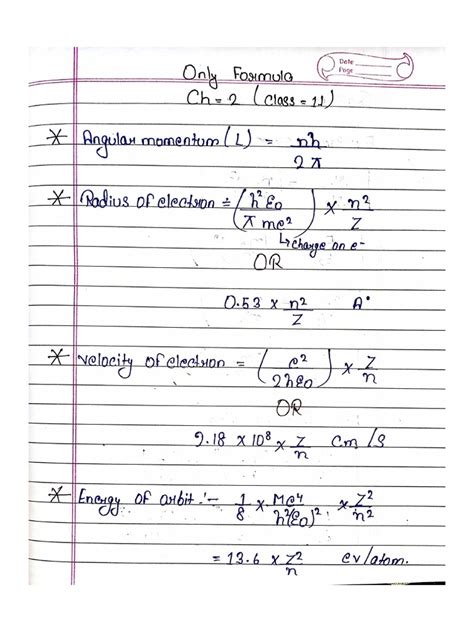 Date
Page
Only Formula
Ch = 2 (Class = 11)
* Angular momentum (L) = nh / 2π
* Radius of electron = (h²ε0 / π me²) × n² / Z
↳ charge on e-
OR
0.53 × n² / Z A°
* Velocity of electron = (e² / 2hε0) × Z / n
OR
2.18 × 10⁸ × Z / n cm/s
* Energy of orbit :- 1/8 × Me⁴ / h²(ε0)² × Z² / n²
= 13.6 × Z² / n ev/atom.